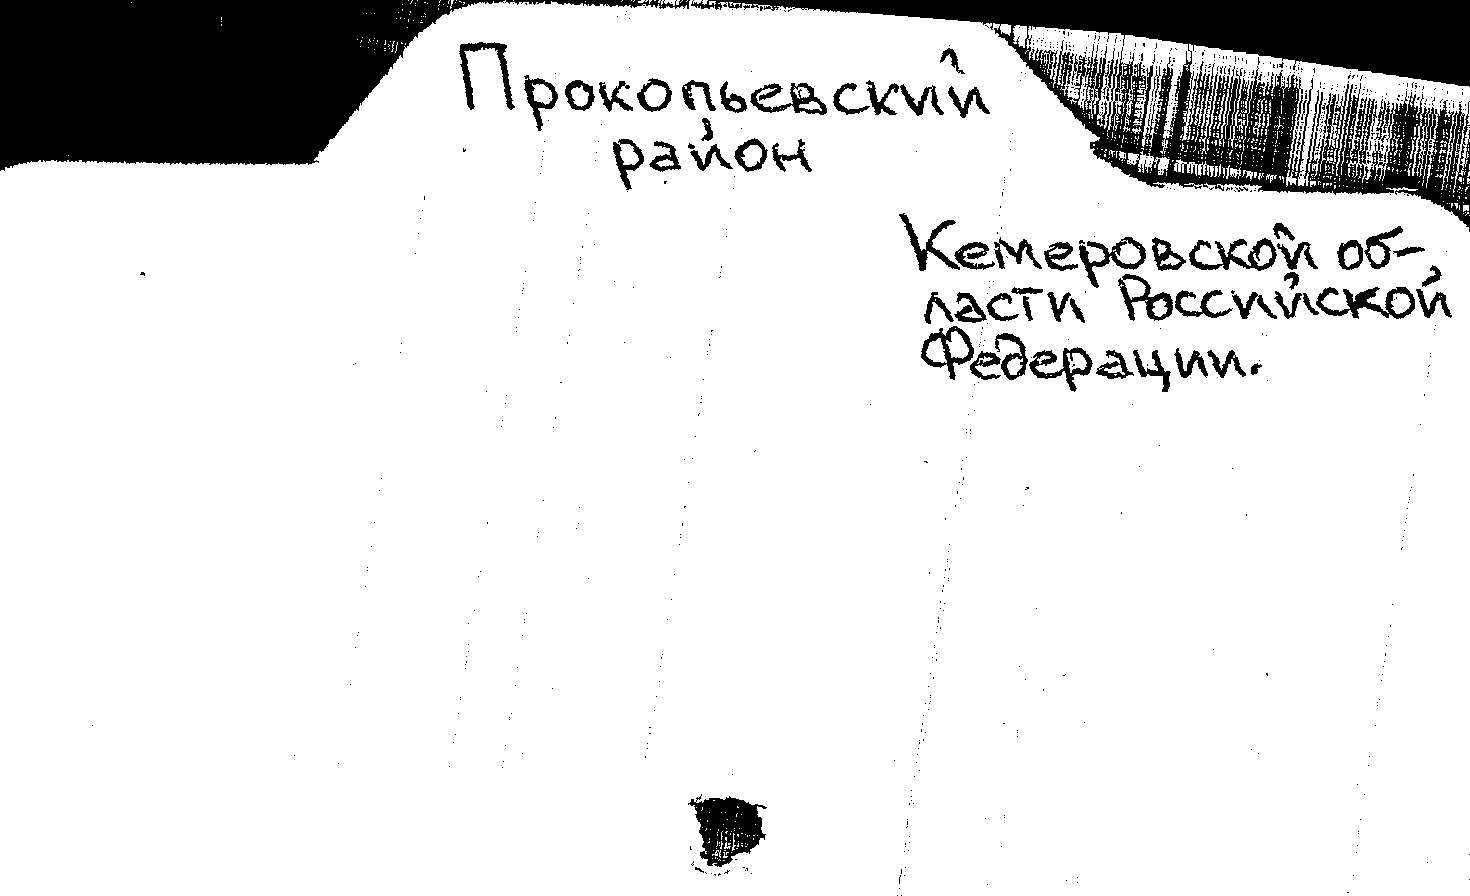 Прокопьевский
район
Кемеровской об-
ласти Российской
Федерации.